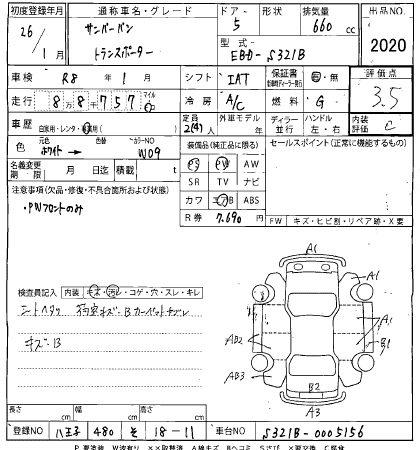 初度登録年月 通称車名・グレード ドア・形状 排気量 出品NO.
26/1月 サンバーバン トランスポーター 5 660cc 2020
型式 EBD-S321B
車検 R8年1月 シフト IAT 保証書 有・無 評価点
走行 8万8千757 マイル 冷房 A/C 燃料 G 3.5
車歴 自家用・レンタ・ 定員 2(4)人 外車モデル 年 ディーラー 並行 ハンドル 左・右 内装評価 C
色 元色 ホワイト→ 色替 カラーNO W09 装備品(純正品に限る) セールスポイント(正常に機能するもの)
名義変更期限 月 日迄 積載 t PS PW AW
注意事項(欠品・修復・不具合箇所および状態) SR TV ナビ
・PWフロントのみ カワ エアB ABS
R券 7,690 FW キズ・ヒビ割・リペア跡・X要
検査員記入 内装 キズ・汚れ・コゲ・穴・スレ・キレ
シートヘタリ 荷室キズ・B
キズ・B
A1
A1
A1
B1
AB2
AB3
B2
A3
長さ cm 幅 cm 高さ cm
登録NO 八王子 480 そ 18-11 車台NO S321B-0005156
P要塗装 W波有り XX取替済 A線キズ Bヘコミ Sさび X要交換 C腐食